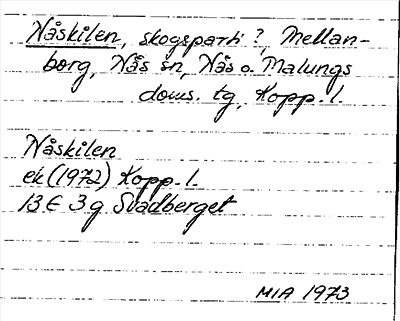 Nåskilen, skogsparti?, Mellan-
borg, Nås sn, Nås o. Malungs
doms. tg, Kopp. l.
Nåskilen
ek (1972) Kopp. l.
13 E 3 g Svadberget
MIA 1973